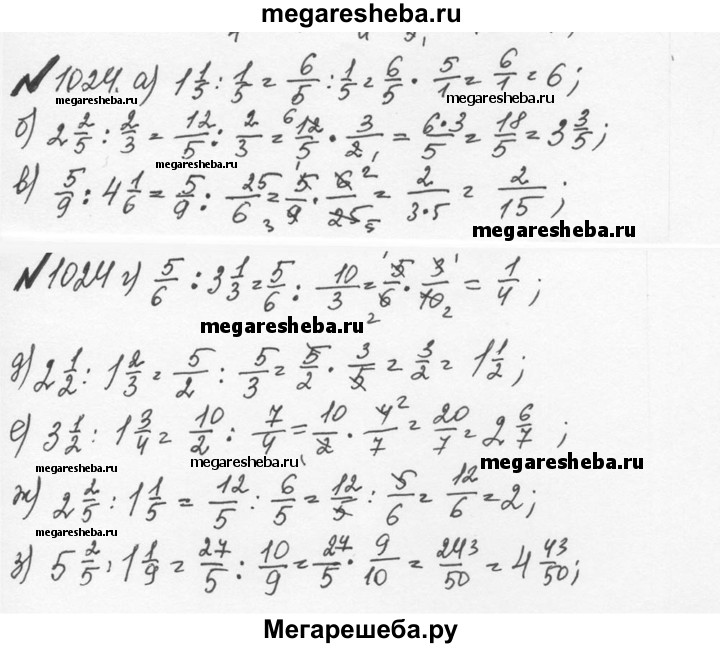 megaresheba.ru
№1024. а) 1 1/5 : 1/5 = 6/5 : 1/5 = 6/5 · 5/1 = 6/1 = 6;
megaresheba.ru megaresheba.ru
б) 2 2/5 : 2/3 = 12/5 : 2/3 = 12/5 · 3/2 = 6·3/5 = 18/5 = 3 3/5;
megaresheba.ru
в) 5/9 : 4 1/6 = 5/9 : 25/6 = 5/9 · 6/25 = 2/3·5 = 2/15;
megaresheba.ru
№1024 г) 5/6 : 3 1/3 = 5/6 : 10/3 = 5/6 · 3/10 = 1/4;
megaresheba.ru
д) 2 1/2 : 1 2/3 = 5/2 : 5/3 = 5/2 · 3/5 = 3/2 = 1 1/2;
megaresheba.ru
е) 3 1/2 : 1 3/4 = 10/2 : 7/4 = 10/2 · 4/7 = 20/7 = 2 6/7;
megaresheba.ru megaresheba.ru
megaresheba.ru
ж) 2 2/5 : 1 1/5 = 12/5 : 6/5 = 12/5 : 5/6 = 12/6 = 2;
megaresheba.ru
з) 5 2/5 : 1 1/9 = 27/5 : 10/9 = 27/5 · 9/10 = 243/50 = 4 43/50;
Мегарешеба.ру